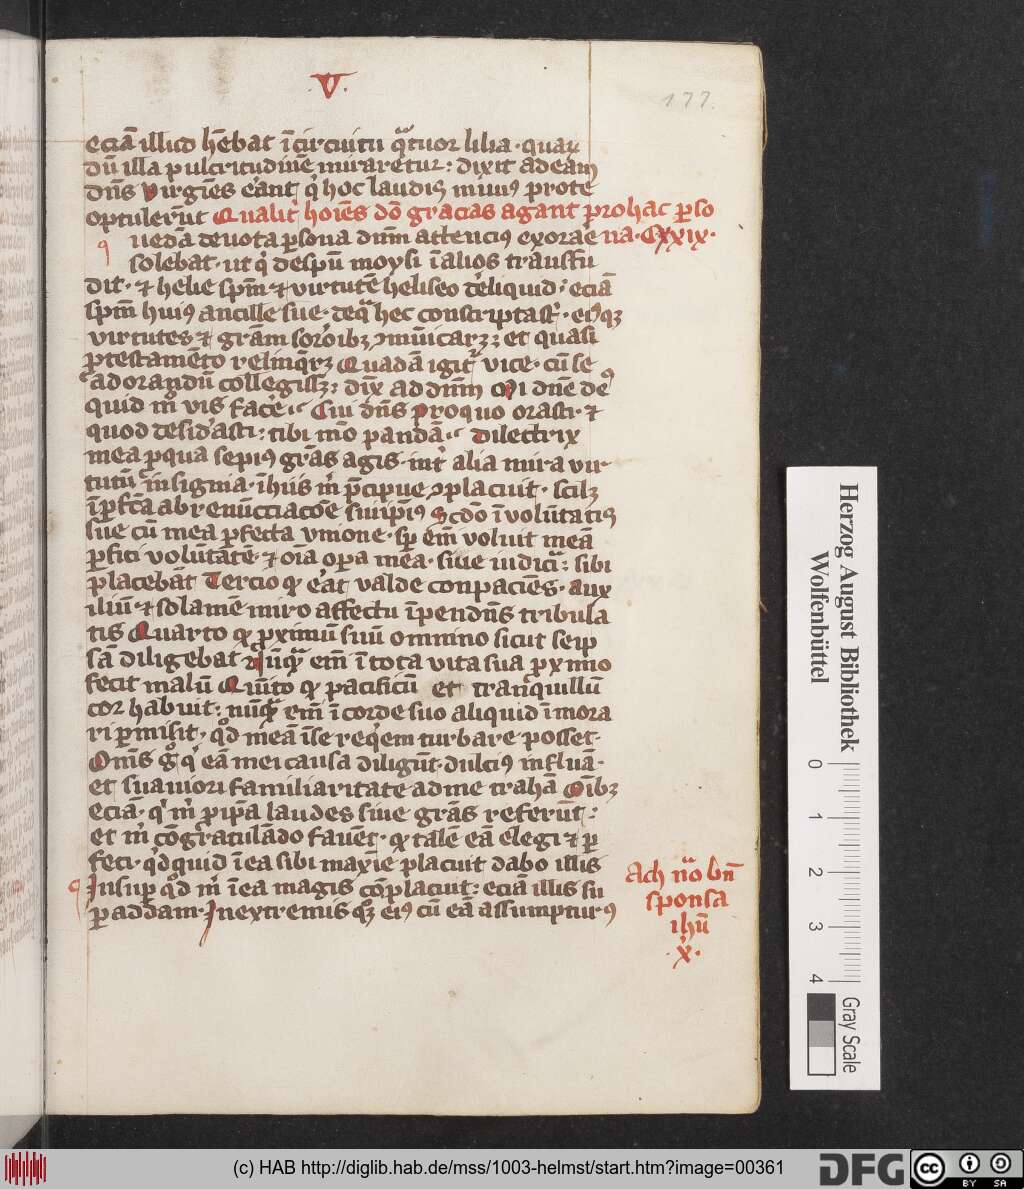 .V.
177.
eciā illud hēbat ī circuitu q̄tuor lilia · quarū
dū illā pulcritudinē miraretur : dixit ad eam
dn̄s virgiēs erāt q̇ hoc laudis munus pro te
optulerūt Qualit͛ hoīes dō gracias agant pro hac p̱so
Quedā deuota p̱sona dn̄m attencius exorare na · Cxxix ·
solebat · ut q̇ de sp̄u moysi ī alios transtu
dit · ⁊ helie sp̄m ⁊ virtutē heliseo dereliquid : eciā
sp̄m huius ancille sue · de qua hec conscripta st̄ · eiusqꝫ
virtutes ⁊ grām sororibꝫ ꝯmūicarꝫ : et quasi
p̱ testamēto relinq̄rꝫ Quadā igit͛ vice · cū se
ad orandū collegissꝫ : dix̄ ad dn̄m Mi dn̄e de⁹
quid m̄ vis facere Cui dn̄s Pro quo orasti · ⁊
quod desiderasti : tibi mō pandā Dilectrix
mea p̱ qua sepius grās agis · int̄ alia mira vir
tutū insignia · ī hiis m̄ p̄cipue ꝯplacuit · scilꝫ
ī p̱fc̄a abrenūcciacōe sui ip̄ius Scdo ī volūtatis
sue cū mea p̱fecta vnione · sp̱ em̄ voluit meā
p̱fici volūtatē · ⁊ oīa oꝑa mea · siue iudicia : sibi
placebāt Tercio qꝫ erat valde conpaciēs · aux
iliū · ⁊ solamē miro affectu īpendēs tribula
tis Quarto qꝫ p̱ximū suū omnino sicut seip̄
sā diligebat nūq̄ em̄ ī tota vita sua p̱ximo
fecit malū Quīto qꝫ pacificū et tranquillū
cor habuit : nūq̄ em̄ ī corde suo aliquid īmora
ri p̱misit · qd̄ meā ī se reqem turbare posset
Om̄s g̊ q̇ eā mei causa diligūt · dulcius influā ·
et suauiori familiaritate ad me trahā Oībꝫ
eciā · q̇ m̄ p̱ ip̄a laudes siue grās referūt :
et m̄ cōgratulādo fauēt · qꝫ talē eā elegi ⁊ p̱
feci · qdquid ī ea sibi maxīe placuit dabo illis
Insuper qd̄ m̄ ī ea magis cōplacuit : eciā illis su
p̱addam · In extremis qꝫ eius cū eā assumpturus
Ach n̄a bn̄
sponsa
ihū
· x̄ ·
Herzog August Bibliothek
Wolfenbüttel
0 1 2 3 4
Gray Scale
(c) HAB http://diglib.hab.de/mss/1003-helmst/start.htm?image=00361
DFG
cc BY SA